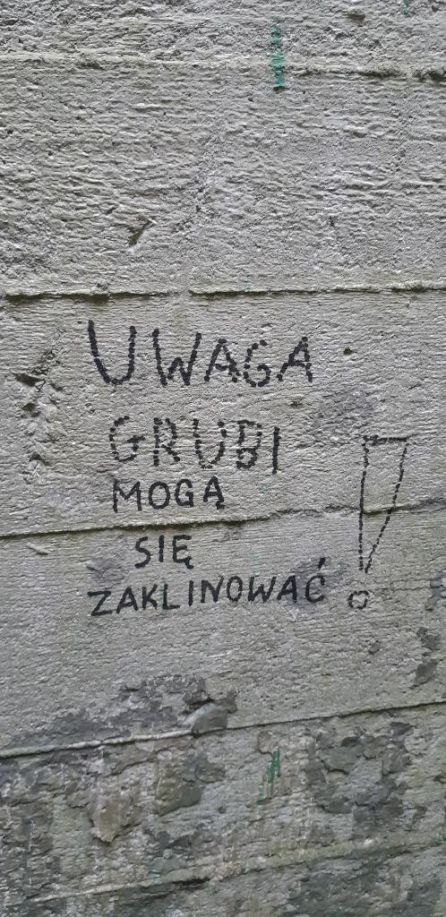 UWAGA
GRUBI
MOGĄ
SIĘ
ZAKLINOWAĆ!